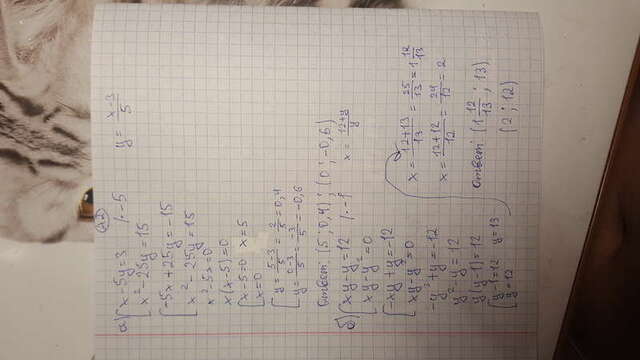 А2
а) { x - 5y = 3 | · -5
{ x² - 25y = 15
y = (x-3)/5
{ -5x + 25y = -15
{ x² - 25y = 15
x² - 5x = 0
x(x-5) = 0
[ x - 5 = 0 x = 5
[ x = 0
[ y = (5-3)/5 = 2/5 = 0,4
[ y = (0-3)/5 = -3/5 = -0,6
Ответ: (5; 0,4); (0; -0,6)
б) { xy - y = 12 | · -1
{ xy - y² = 0
x = (12+y)/y
{ -xy + y = -12
{ xy - y² = 0
-y² + y = -12
y² - y = 12
y(y-1) = 12
[ y-1 = 12 y = 13
[ y = 12
x = (12+13)/13 = 25/13 = 1 12/13
x = (12+12)/12 = 24/12 = 2
Ответ: (1 12/13; 13)
(2; 12)